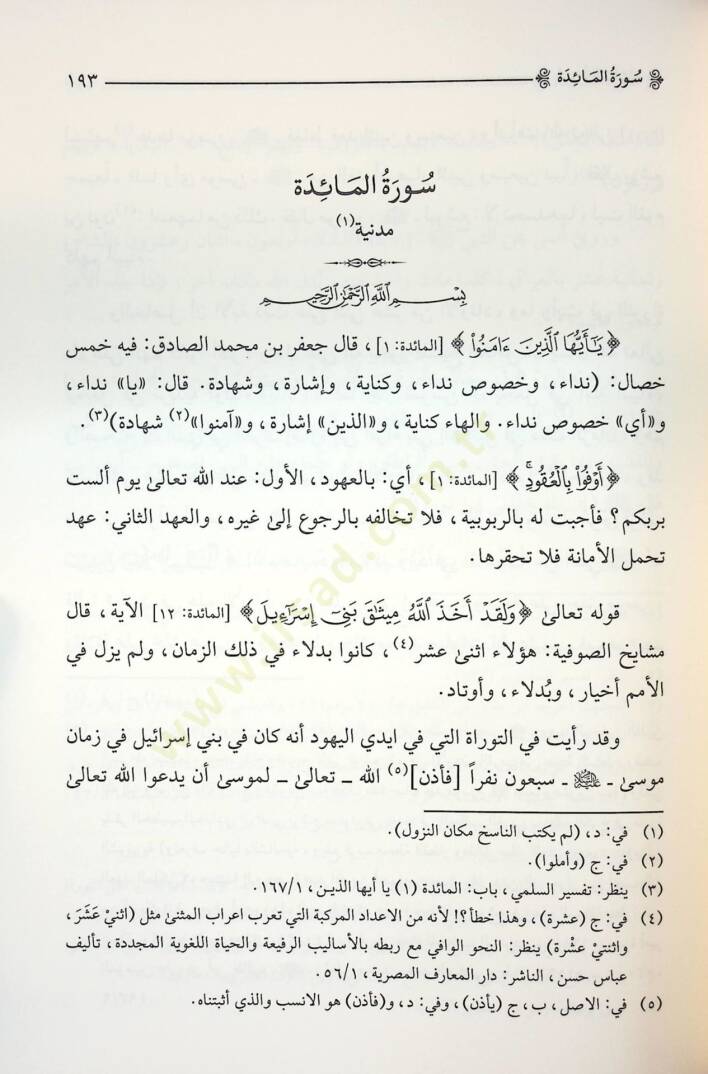 سُورَةُ المَائِدَة ١٩٣
سُورَةُ المَائِدَة
مدنية(١)
بِسْمِ اللَّهِ الرَّحْمَٰنِ الرَّحِيمِ
﴿يَٰٓأَيُّهَا ٱلَّذِينَ ءَامَنُوٓا۟﴾ [المائدة: ١]، قال جعفر بن محمد الصادق: فيه خمس
خصال: (نداء، وخصوص نداء، وكناية، وإشارة، وشهادة. قال: «يا» نداء،
و«أي» خصوص نداء. والهاء كناية، و«الذين» إشارة، و«آمنوا»(٢) شهادة)(٣).
﴿أَوْفُوا۟ بِٱلْعُقُودِۚ﴾ [المائدة: ١]، أي: بالعهود، الأول: عند الله تعالىٰ يوم ألست
بربكم؟ فأجبت له بالربوبية، فلا تخالفه بالرجوع إلىٰ غيره، والعهد الثاني: عهد
تحمل الأمانة فلا تحقرها.
قوله تعالىٰ ﴿وَلَقَدْ أَخَذَ ٱللَّهُ مِيثَٰقَ بَنِىٓ إِسْرَٰٓءِيلَ﴾ [المائدة: ١٢] الآية، قال
مشايخ الصوفية: هؤلاء اثنىٰ عشر(٤)، كانوا بدلاء في ذلك الزمان، ولم يزل في
الأمم أخيار، وبُدلاء، وأوتاد.
وقد رأيت في التوراة التي في ايدي اليهود أنه كان في بني إسرائيل في زمان
موسىٰ ـ ﷺ ـ سبعون نفراً [فأذن](٥) الله ـ تعالىٰ ـ لموسىٰ أن يدعوا الله تعالىٰ
(١) في: د، (لم يكتب الناسخ مكان النزول).
(٢) في: ج (وأملوا).
(٣) ينظر: تفسير السلمي، باب: المائدة (١) يا أيها الذين، ١٦٧/١.
(٤) في: ج (عشرة)، وهذا خطأ؟! لأنه من الاعداد المركبة التي تعرب اعراب المثنىٰ مثل (اثنيْ عَشَرَ،
واثنتيْ عشْرة) ينظر: النحو الوافي مع ربطه بالأساليب الرفيعة والحياة اللغوية المجددة، تأليف
عباس حسن، الناشر: دار المعارف المصرية، ٥٦/١.
(٥) في: الاصل، ب، ج (يأذن)، وفي: د، و(فأذن) هو الانسب والذي أثبتناه.
www.irsad.com.tr